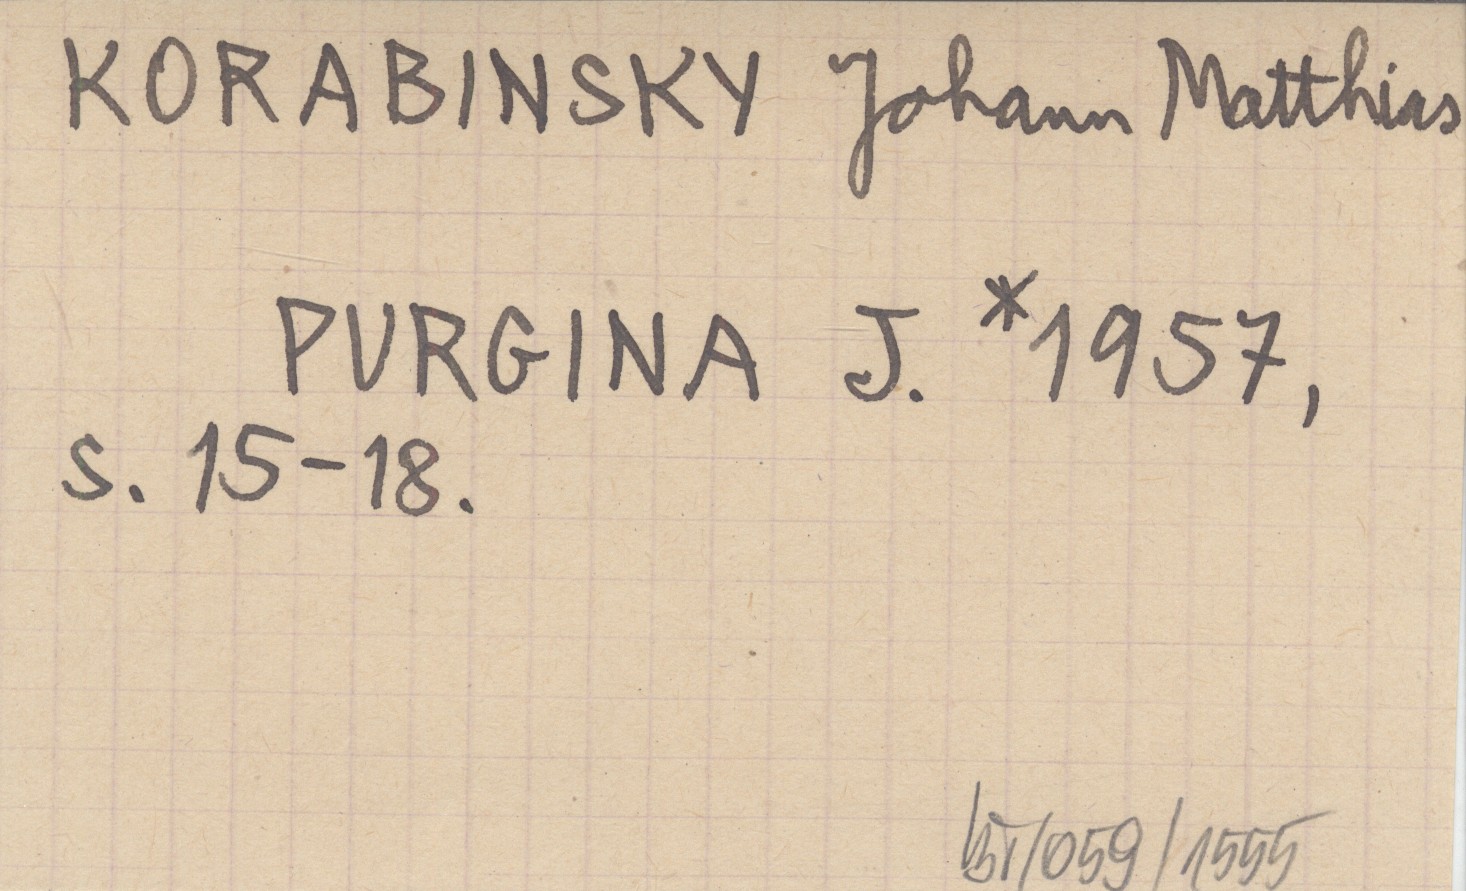 KORABINSKY Johann Matthias
PURGINA J. *1957,
s. 15-18.
/059/1555